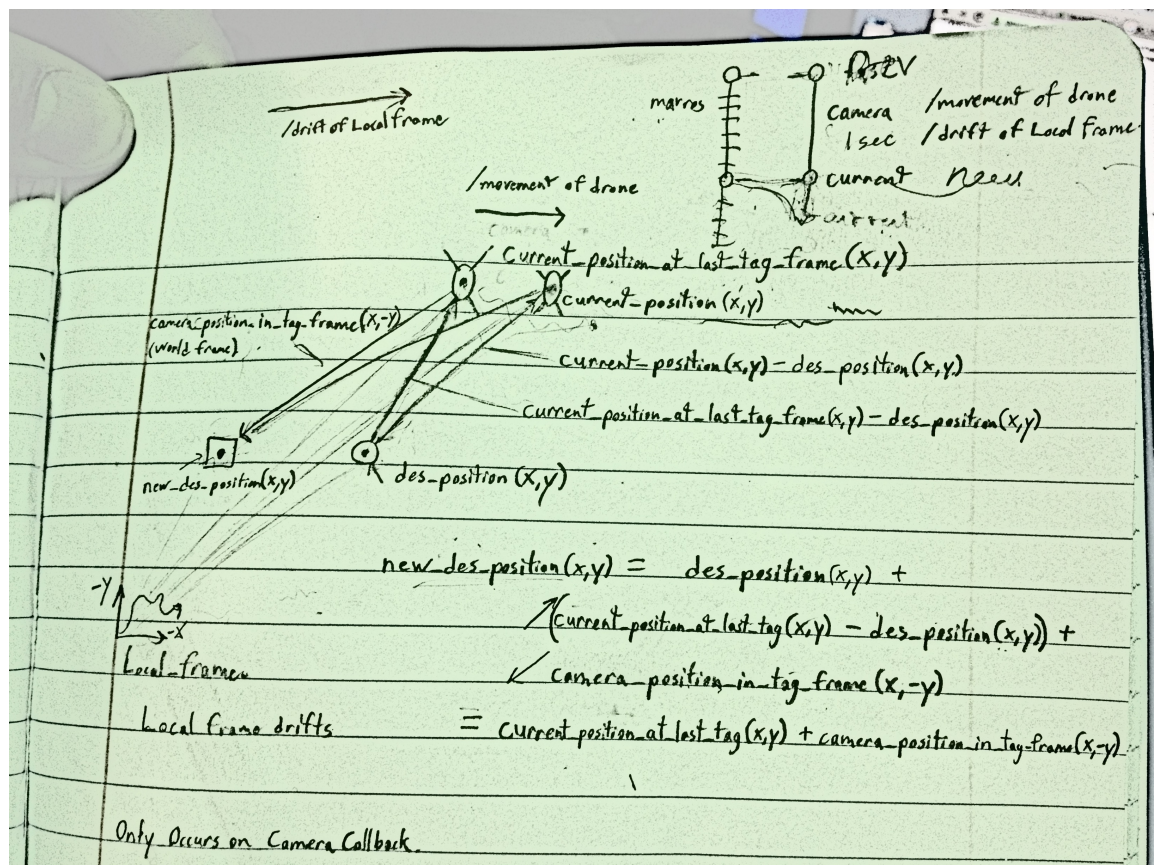 /drift of Local frame
/movement of drone
mavros
camera /movement of drone
1 sec /drift of Local Frame
current New
current
Current_position_at_last_tag_frame(x,y)
current_position(x,y)
camera_position_in_tag_frame(x,-y)
(world frame)
current_position(x,y) - des_position(x,y)
current_position_at_last_tag_frame(x,y) - des_position(x,y)
new_des_position(x,y)
des_position(x,y)
new_des_position(x,y) = des_position(x,y) +
(current_position_at_last_tag(x,y) - des_position(x,y)) +
camera_position_in_tag_frame(x,-y)
-Y
-X
Local_frame
Local frame drifts
= current_position_at_last_tag(x,y) + camera_position_in_tag_frame(x,-y)
Only Occurs on Camera Callback.